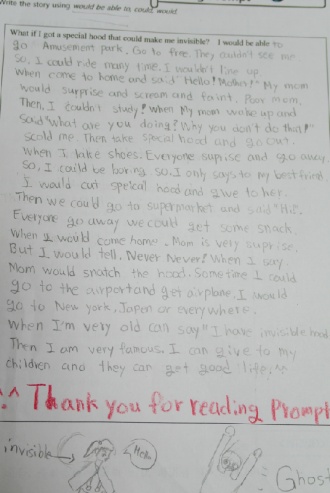 Write the story using would be able to, could, would.
What if I got a special hood that could make me invisible? I would be able to
go Amusement park. Go to free. They couldn't see me
So, I could ride many time. I wouldn't line up
When come to home and said "Hello! Mother!" My mom
would surprise and scream and faint. Poor mom.
Then, I couldn't study! When My mom wake up and
said "what are you doing? Why you don't do that!"
scold me. Then take special hood and go out.
When I take shoes. Everyone suprise and go away.
So, I could be boring. So I only says to my best friend.
I would cut speical hood and give to her.
Then we could go to supermarket and said "Hi!".
Everyone go away we could get some snack.
When I would come home. Mom is very suprise.
But I would tell. Never Never! When I say.
Mom would snatch the hood. Sometime I could
go to the airport and get airplane, I would
go to New york, Japan or everywhere.
When I'm very old can say "I have invisible hood
Then I am very famous. I can give to my
children and they can get good life! ^^
^.^ Thank you for reading Prompt
invisible
Hello
Ghost